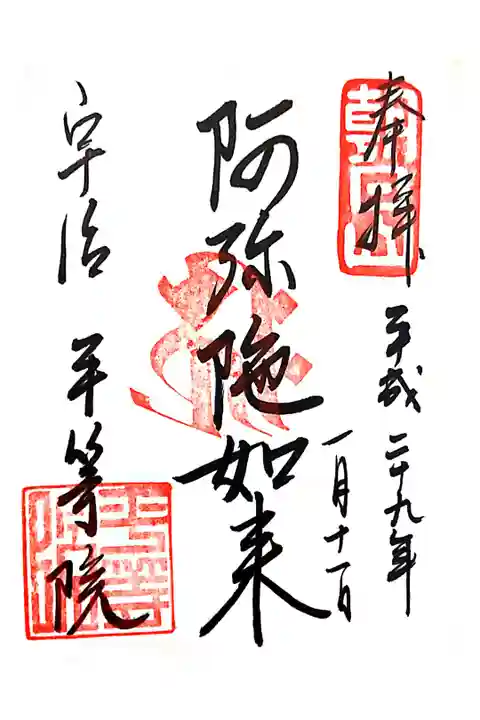 奉拝
平成二十九年
一月十一日
阿弥陀如来
宇治 平等院
朝日山